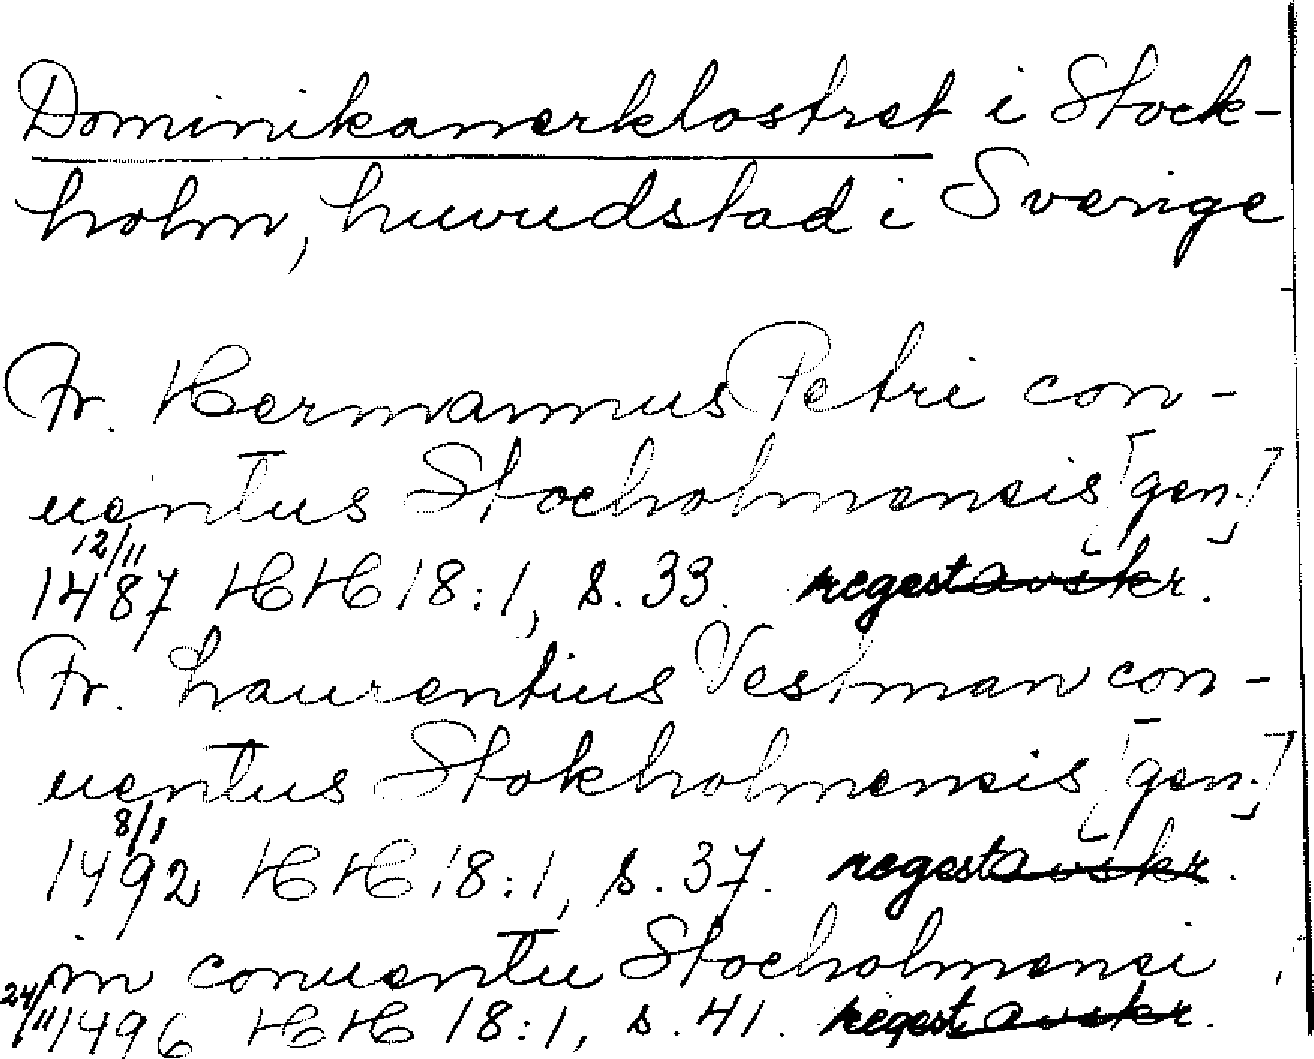 Dominikanerklostret i Stock-
holm, huvudstad i Sverige
Fr. Hermannus Petri con-
uentus Stocholmensis [gen.]
12/11
1487 HH 18:1, s. 33. regest avskr.
Fr. Laurentius Vestman con-
uentus Stokholmensis [gen.]
8/1
1492 HH 18:1, s. 37. regest avskr.
in conuentu Stocholmensi
24/11 1496 HH 18:1, s. 41. regest avskr.